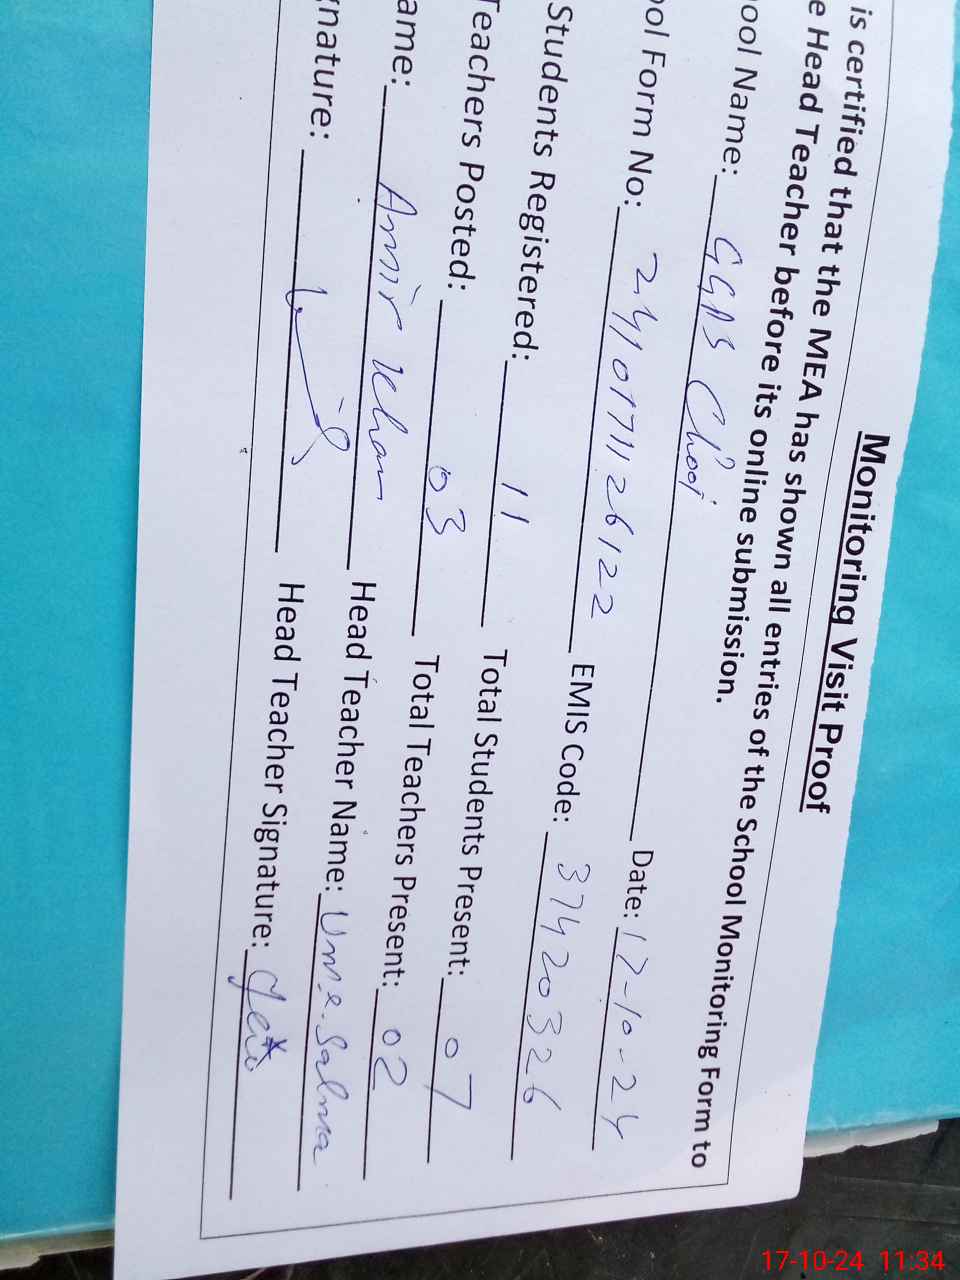 Monitoring Visit Proof
is certified that the MEA has shown all entries of the School Monitoring Form to
e Head Teacher before its online submission.
ool Name: GGPS Date: 17-10-24
ool Form No: 2410171126122 EMIS Code: 37420326
Students Registered: 11 Total Students Present: 07
Teachers Posted: 03 Total Teachers Present: 02
ame: Amir Khan Head Teacher Name: Ume Salma
gnature: Head Teacher Signature:
17-10-24 11:34